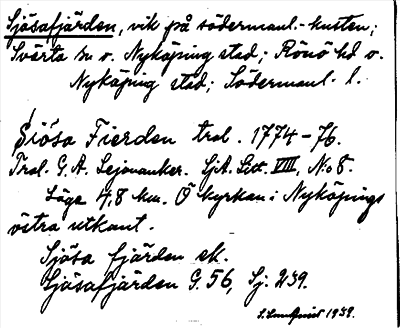 Sjösafjärden, vik på södermanl.-kusten;
Svärta sn o. Nyköping stad; Rönö hd o.
Nyköping stad; Södermanl. l.
Siösa Fierden tral. 1774-76.
Tral. G. A. Lejonanker. SjA. Litt. VIII, N:o 8.
Läge 4,8 km. Ö kyrkan i Nyköpings
östra utkant.
Sjösa fjärden ek.
Sjösafjärden G. 56, Sj. 239.
1939.